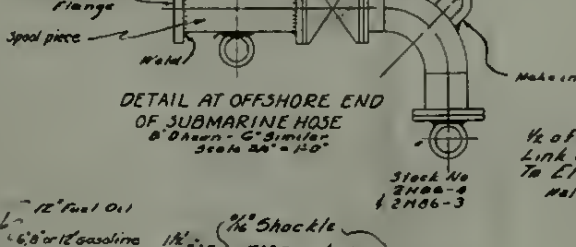 Flange
Spool piece
Weld
Make in
DETAIL AT OFFSHORE END
OF SUBMARINE HOSE
8" Shown - 6" Similar
Scale 3/4" = 1'-0"
1/2 of
Link
To El
Stock No
2H86-4
& 2H86-3
12" Fuel Oil
6", 8" or 12" gasoline
1 1/2"
9/16" Shackle